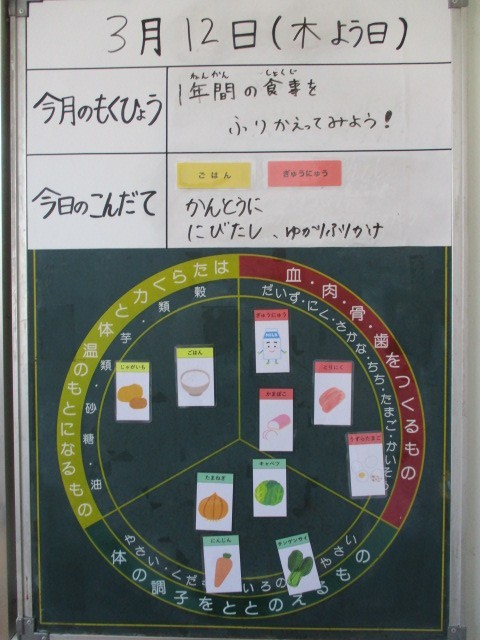 3月12日(木よう日)
今月のもくひょう
ねんかん しょくじ
1年間の食事を
ふりかえってみよう!
今日のこんだて
ごはん
ぎゅうにゅう
かんとうに
にびたし、ゆかりふりかけ
はたらくカと体温のもとになるもの
穀類・芋類・砂糖・油
血・肉・骨・歯をつくるもの
だいず・にく・さかな・ちち・たまご・かいそう
ぎゅうにゅう
じゃがいも
ごはん
とりにく
かまぼこ
うずらたまご
たまねぎ
キャベツ
にんじん
チンゲンサイ
やさい・くだ
いろの
やさい
体の調子をととのえるもの